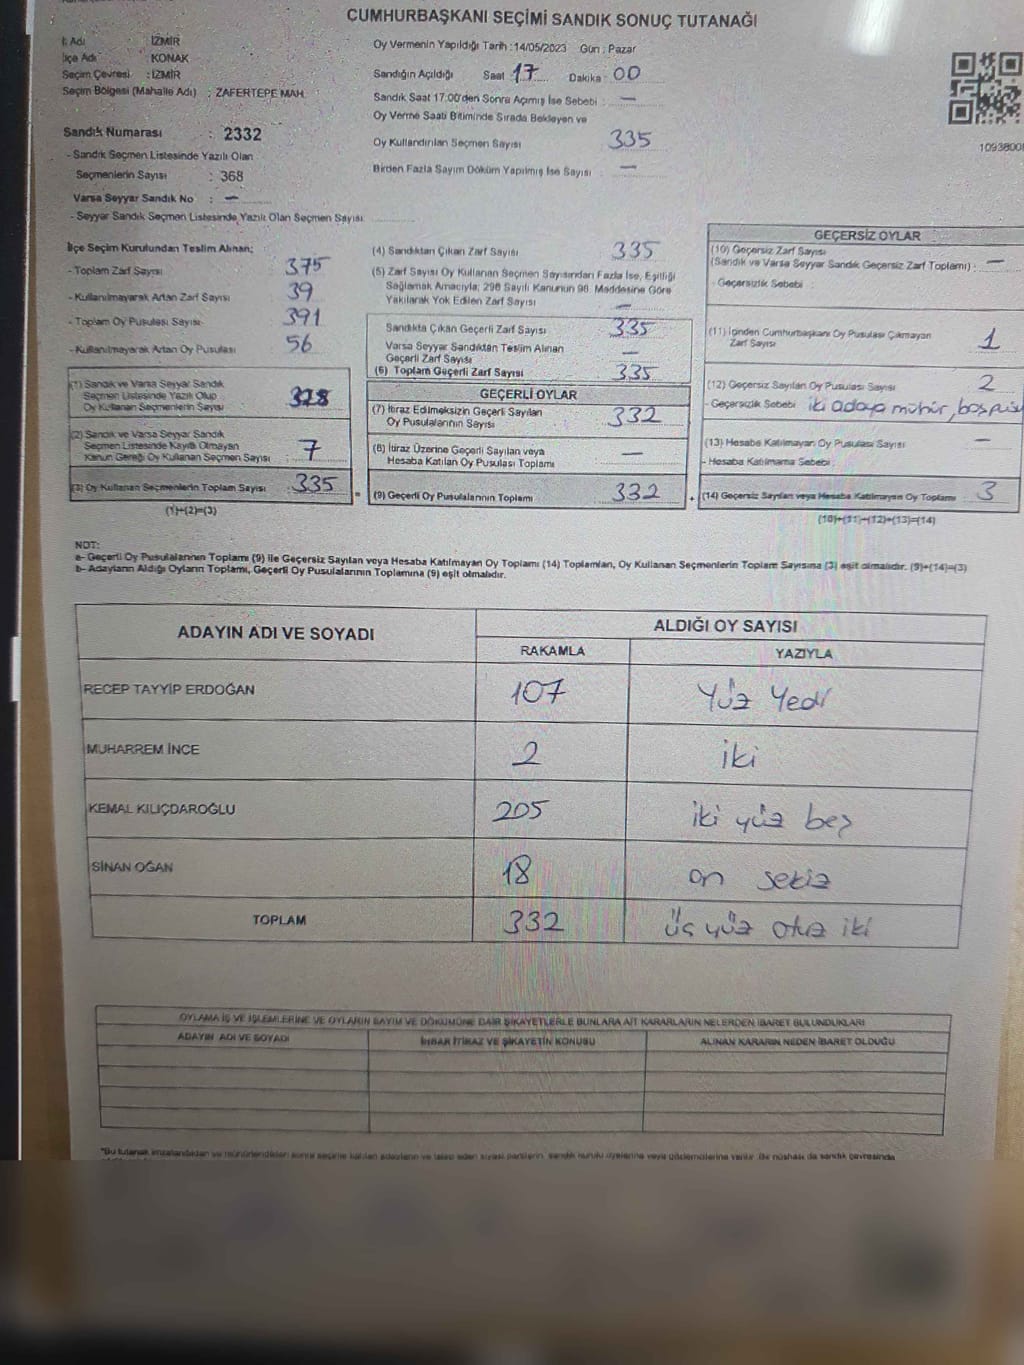 CUMHURBAŞKANI SEÇİMİ SANDIK SONUÇ TUTANAĞI
İl Adı : İZMİR
İlçe Adı : KONAK
Seçim Çevresi : İZMİR
Seçim Bölgesi (Mahalle Adı) : ZAFERTEPE MAH.
Sandık Numarası : 2332
- Sandık Seçmen Listesinde Yazılı Olan
Seçmenlerin Sayısı : 368
Varsa Seyyar Sandık No : —
- Seyyar Sandık Seçmen Listesinde Yazılı Olan Seçmen Sayısı
Oy Vermenin Yapıldığı Tarih : 14/05/2023 Gün : Pazar
Sandığın Açıldığı Saat : 17 Dakika : 00
Sandık Saat 17:00'den Sonra Açımış İse Sebebi : —
Oy Verme Saati Bitiminde Sırada Bekleyen ve
Oy Kullandırılan Seçmen Sayısı 335
Birden Fazla Sayım Döküm Yapılmış İse Sayısı —
1093800
İlçe Seçim Kurulundan Teslim Alınan;
- Toplam Zarf Sayısı 375
- Kullanılmayarak Artan Zarf Sayısı 39
- Toplam Oy Pusulası Sayısı 391
- Kullanılmayarak Artan Oy Pusulası 56
(1) Sandık ve Varsa Seyyar Sandık
Seçmen Listesinde Yazılı Olup
Oy Kullanan Seçmenlerin Sayısı 328
(2) Sandık ve Varsa Seyyar Sandık
Seçmen Listesinde Kayıtlı Olmayan
Kanun Gereği Oy Kullanan Seçmen Sayısı : 7
(3) Oy Kullanan Seçmenlerin Toplam Sayısı : 335
(1)+(2)=(3)
(4) Sandıktan Çıkan Zarf Sayısı 335
(5) Zarf Sayısı Oy Kullanan Seçmen Sayısından Fazla İse, Eşitliği
Sağlamak Amacıyla; 298 Sayılı Kanunun 98. Maddesine Göre
Yakılarak Yok Edilen Zarf Sayısı —
Sandıkta Çıkan Geçerli Zarf Sayısı 335
Varsa Seyyar Sandıktan Teslim Alınan
Geçerli Zarf Sayısı —
(6) Toplam Geçerli Zarf Sayısı 335
GEÇERLİ OYLAR
(7) İtiraz Edilmeksizin Geçerli Sayılan
Oy Pusulalarının Sayısı 332
(8) İtiraz Üzerine Geçerli Sayılan veya
Hesaba Katılan Oy Pusulası Toplamı —
= (9) Geçerli Oy Pusulalarının Toplamı 332
GEÇERSİZ OYLAR
(10) Geçersiz Zarf Sayısı
(Sandık ve Varsa Seyyar Sandık Geçersiz Zarf Toplamı) : —
- Geçersizlik Sebebi :
(11) İçinden Cumhurbaşkanı Oy Pusulası Çıkmayan
Zarf Sayısı 1
(12) Geçersiz Sayılan Oy Pusulası Sayısı 2
- Geçersizlik Sebebi iki adaya mühür, boş
(13) Hesaba Katılmayan Oy Pusulası Sayısı —
- Hesaba Katılmama Sebebi :
+ (14) Geçersiz Sayılan veya Hesaba Katılmayan Oy Toplamı 3
(10)+(11)+(12)+(13)=(14)
NOT:
a- Geçerli Oy Pusulalarının Toplamı (9) ile Geçersiz Sayılan veya Hesaba Katılmayan Oy Toplamı (14) Toplamları, Oy Kullanan Seçmenlerin Toplam Sayısına (3) eşit olmalıdır. (9)+(14)=(3)
b- Adayların Aldığı Oyların Toplamı, Geçerli Oy Pusulalarının Toplamına (9) eşit olmalıdır.
ADAYIN ADI VE SOYADI ALDIĞI OY SAYISI
RAKAMLA YAZIYLA
RECEP TAYYİP ERDOĞAN 107 Yüz Yedi
MUHARREM İNCE 2 iki
KEMAL KILIÇDAROĞLU 205 iki yüz beş
SİNAN OĞAN 18 on sekiz
TOPLAM 332 üç yüz otuz iki
OYLAMA İŞ VE İŞLEMLERİNE VE OYLARIN SAYIM VE DÖKÜMÜNE DAİR ŞİKAYETLERLE BUNLARA AİT KARARLARIN NELERDEN İBARET BULUNDUKLARI
ADAYIN ADI VE SOYADI İHBAR İTİRAZ VE ŞİKAYETİN KONUSU ALINAN KARARIN NEDEN İBARET OLDUĞU
*Bu tutanak imzalandıktan ve mühürlendikten sonra seçime katılan adayların ve talep eden siyasi partilerin, sandık kurulu üyelerine veya gözlemcilerine verilir. Bir nüshası da sandık çevresinde